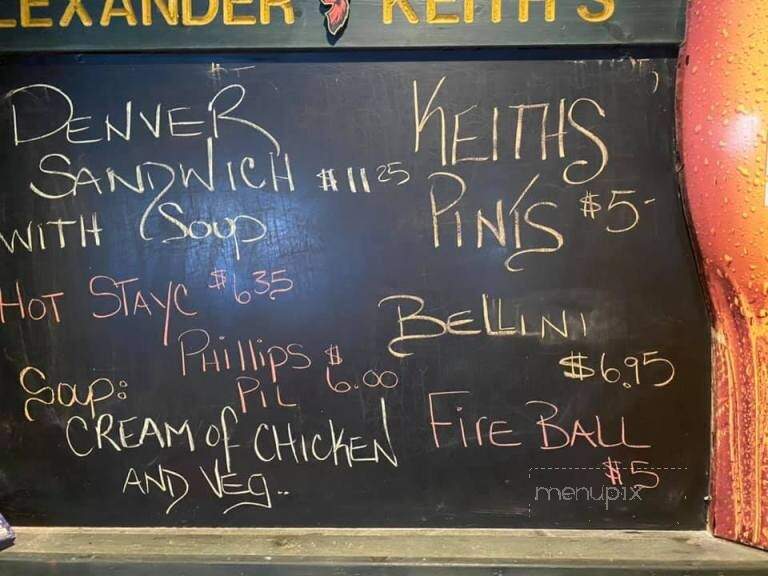 LEXANDER KEITH'S
DENVER
SANDWICH $11 25
WITH Soup
HOT STAYC $6 35
PHillips $
PIL 6.00
Soup:
CREAM of CHICKEN
AND VEG..
KEITHS
PINTS $5-
BELLINI
$6.95
FIRE BALL
$5
menupix